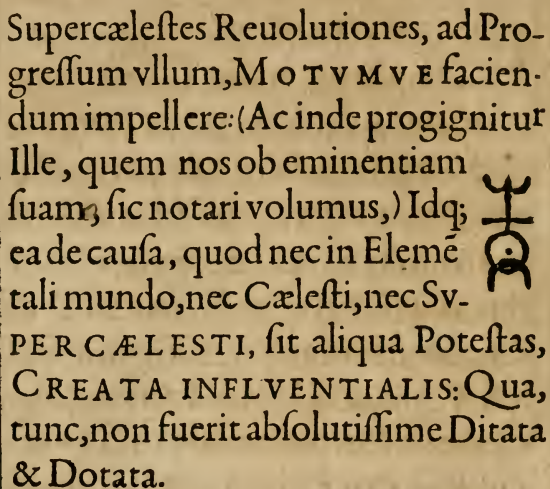 Supercæleſtes Reuolutiones, ad Pro-
greſſum vllum, MOTVMVE facien-
dum impellere: (Ac inde progignitur
Ille, quem nos ob eminentiam
ſuam, ſic notari volumus,) Idq;
ea de cauſa, quod nec in Elemē
tali mundo, nec Cæleſti, nec SV-
PERCÆLESTI, ſit aliqua Poteſtas,
CREATA INFLVENTIALIS: Qua,
tunc, non fuerit abſolutiſſime Ditata
& Dotata.